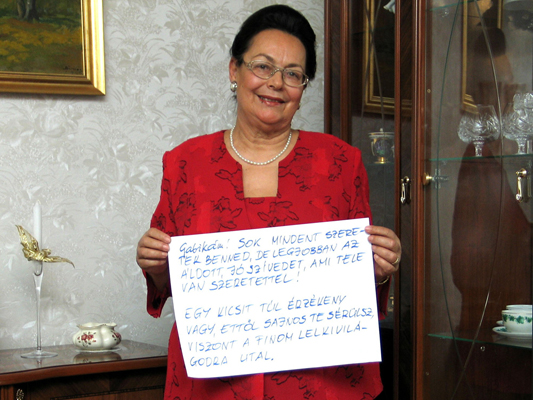 Gabikám! SOK MINDENT SZERE-
TEK BENNED, DE LEGJOBBAN AZ
ÁLDOTT, JÓ SZÍVEDET, AMI TELE
VAN SZERETETTEL!
EGY KICSIT TÚL ÉRZÉKENY
VAGY, ETTŐL SAJNOS TE SÉRÜLSZ,
VISZONT A FINOM LELKIVILÁ-
GODRA UTAL.